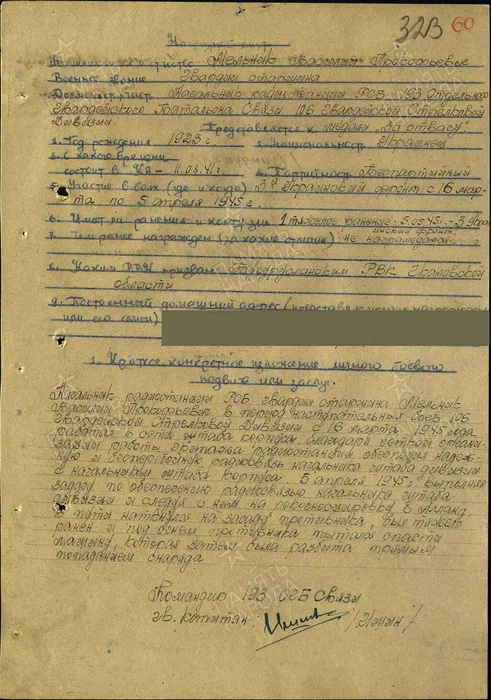 323 60
Наградной лист
Фамилия имя и отчество Мельник Василий Прокофьевич
Военное звание Гвардии старшина
Должность, часть Начальник радиостанции РСБ 193 Отдельного
Гвардейского Батальона Связи 106 Гвардейской Стрелковой
Дивизии
Представляется к медали "За отвагу"
1. Год рождения 1923 г. 2. Национальность Украинец
3. С какого времени
состоит в КА - 11.03.41 г. 4. Партийность Беспартийный
5. Участие в боях (где и когда) 3й Украинский фронт с 16 мар-
та по 5 апреля 1945 г.
6. Имеет ли ранения и контузии 1 тяжелое ранение - 5.04.45 г. - 3 Укра-
инский фронт
7. Чем ранее награжден (за какие отличия) не награждался
8. Каким РВК призван РВК Чкаловской
области
9. Постоянный домашний адрес
или его семьи)
1. Краткое, конкретное изложение личного боевого
подвига или заслуг.
Начальник радиостанции РСБ гвардии старшина Мельник
Василий Прокофьевич в период наступательных боев 106
Гвардейской Стрелковой Дивизии с 16 марта 1945 года,
работая в сети штаба корпуса благодаря четкой органи-
зации работы экипажа радиостанции обеспечил надеж-
ную и бесперебойную радиосвязь начальника штаба дивизии
с начальником штаба корпуса. 5 апреля 1945 г. выполняя
задачу по обеспечению радиосвязью начальника штаба
дивизии и следуя с ним на рекогносцировку в
в пути наткнулся на засаду противника, был тяжело
ранен и под огнем противника пытался спасти
машину, которая затем была разбита прямым
попаданием снаряда
Командир 193 ОГБ Связи
гв. капитан